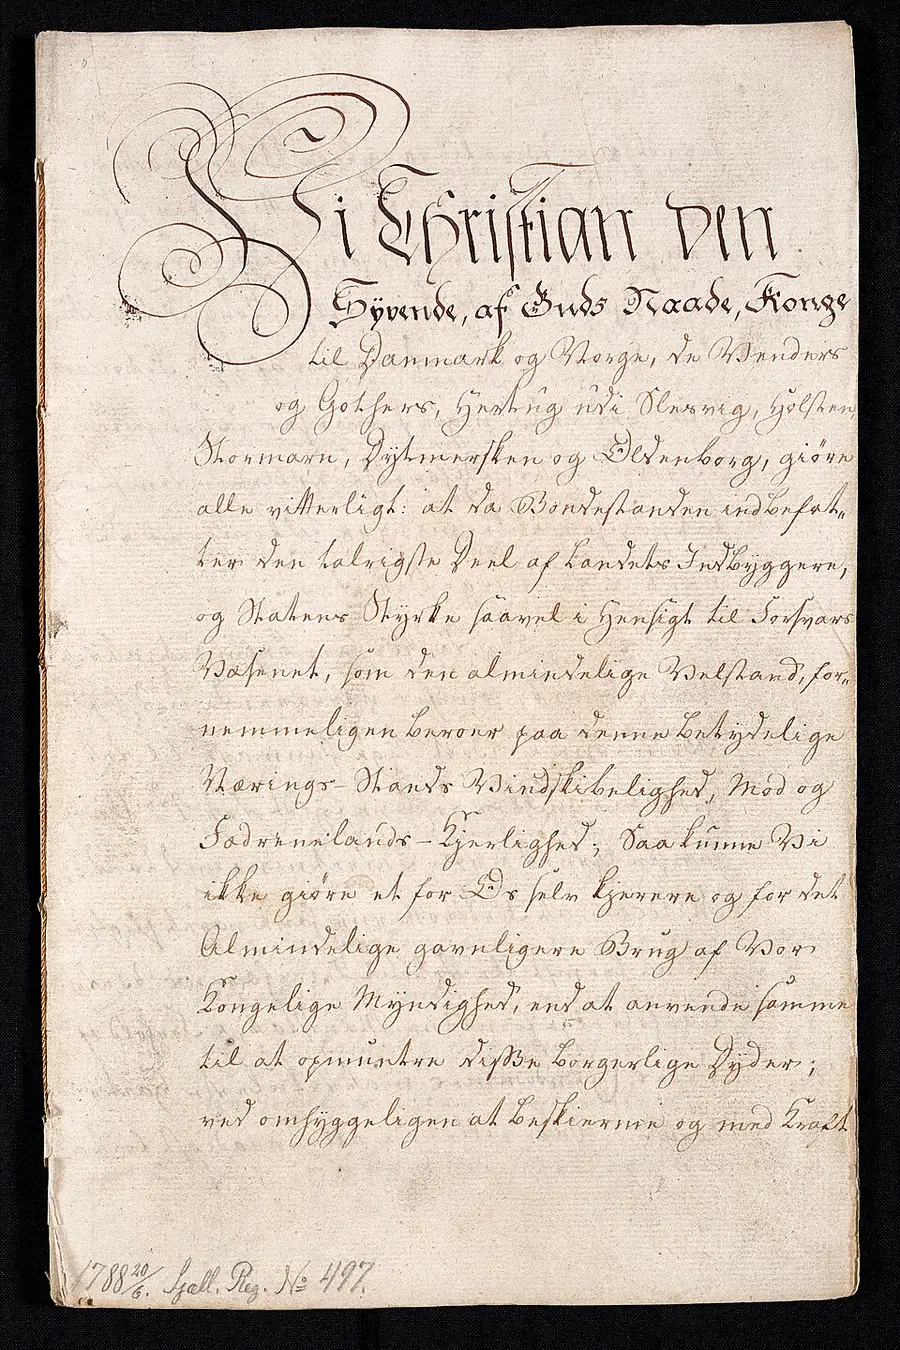 Vi Christian den
Syvende, af Guds Naade, Konge
til Danmark og Norge, de Venders
og Gothers, Hertug udi Slesvig, Holsten,
Stormarn, Dytmersken og Oldenborg, giøre
alle vitterligt: at da Bondestanden indbefat-
ter den talrigste Deel af Landets Indbyggere,
og Statens Styrke saavel i Hensigt til Forsvars
Væsenet, som den almindelige Velstand, for-
nemmeligen beroer paa denne betydelige
Nærings-Stands Vindskibelighed, Mod og
Fædrenelands-Kjerlighed; Saa kunne Vi
ikke giøre et for Os selv kjerere og for det
Almindelige gavnligere Brug af Vor
Kongelige Myndighed, end at anvende samme
til at opmuntre disse borgerlige Dyder;
ved omhyggeligen at beskierme og med Kraft
1788 20/6. Sjæll. Reg. No 497.